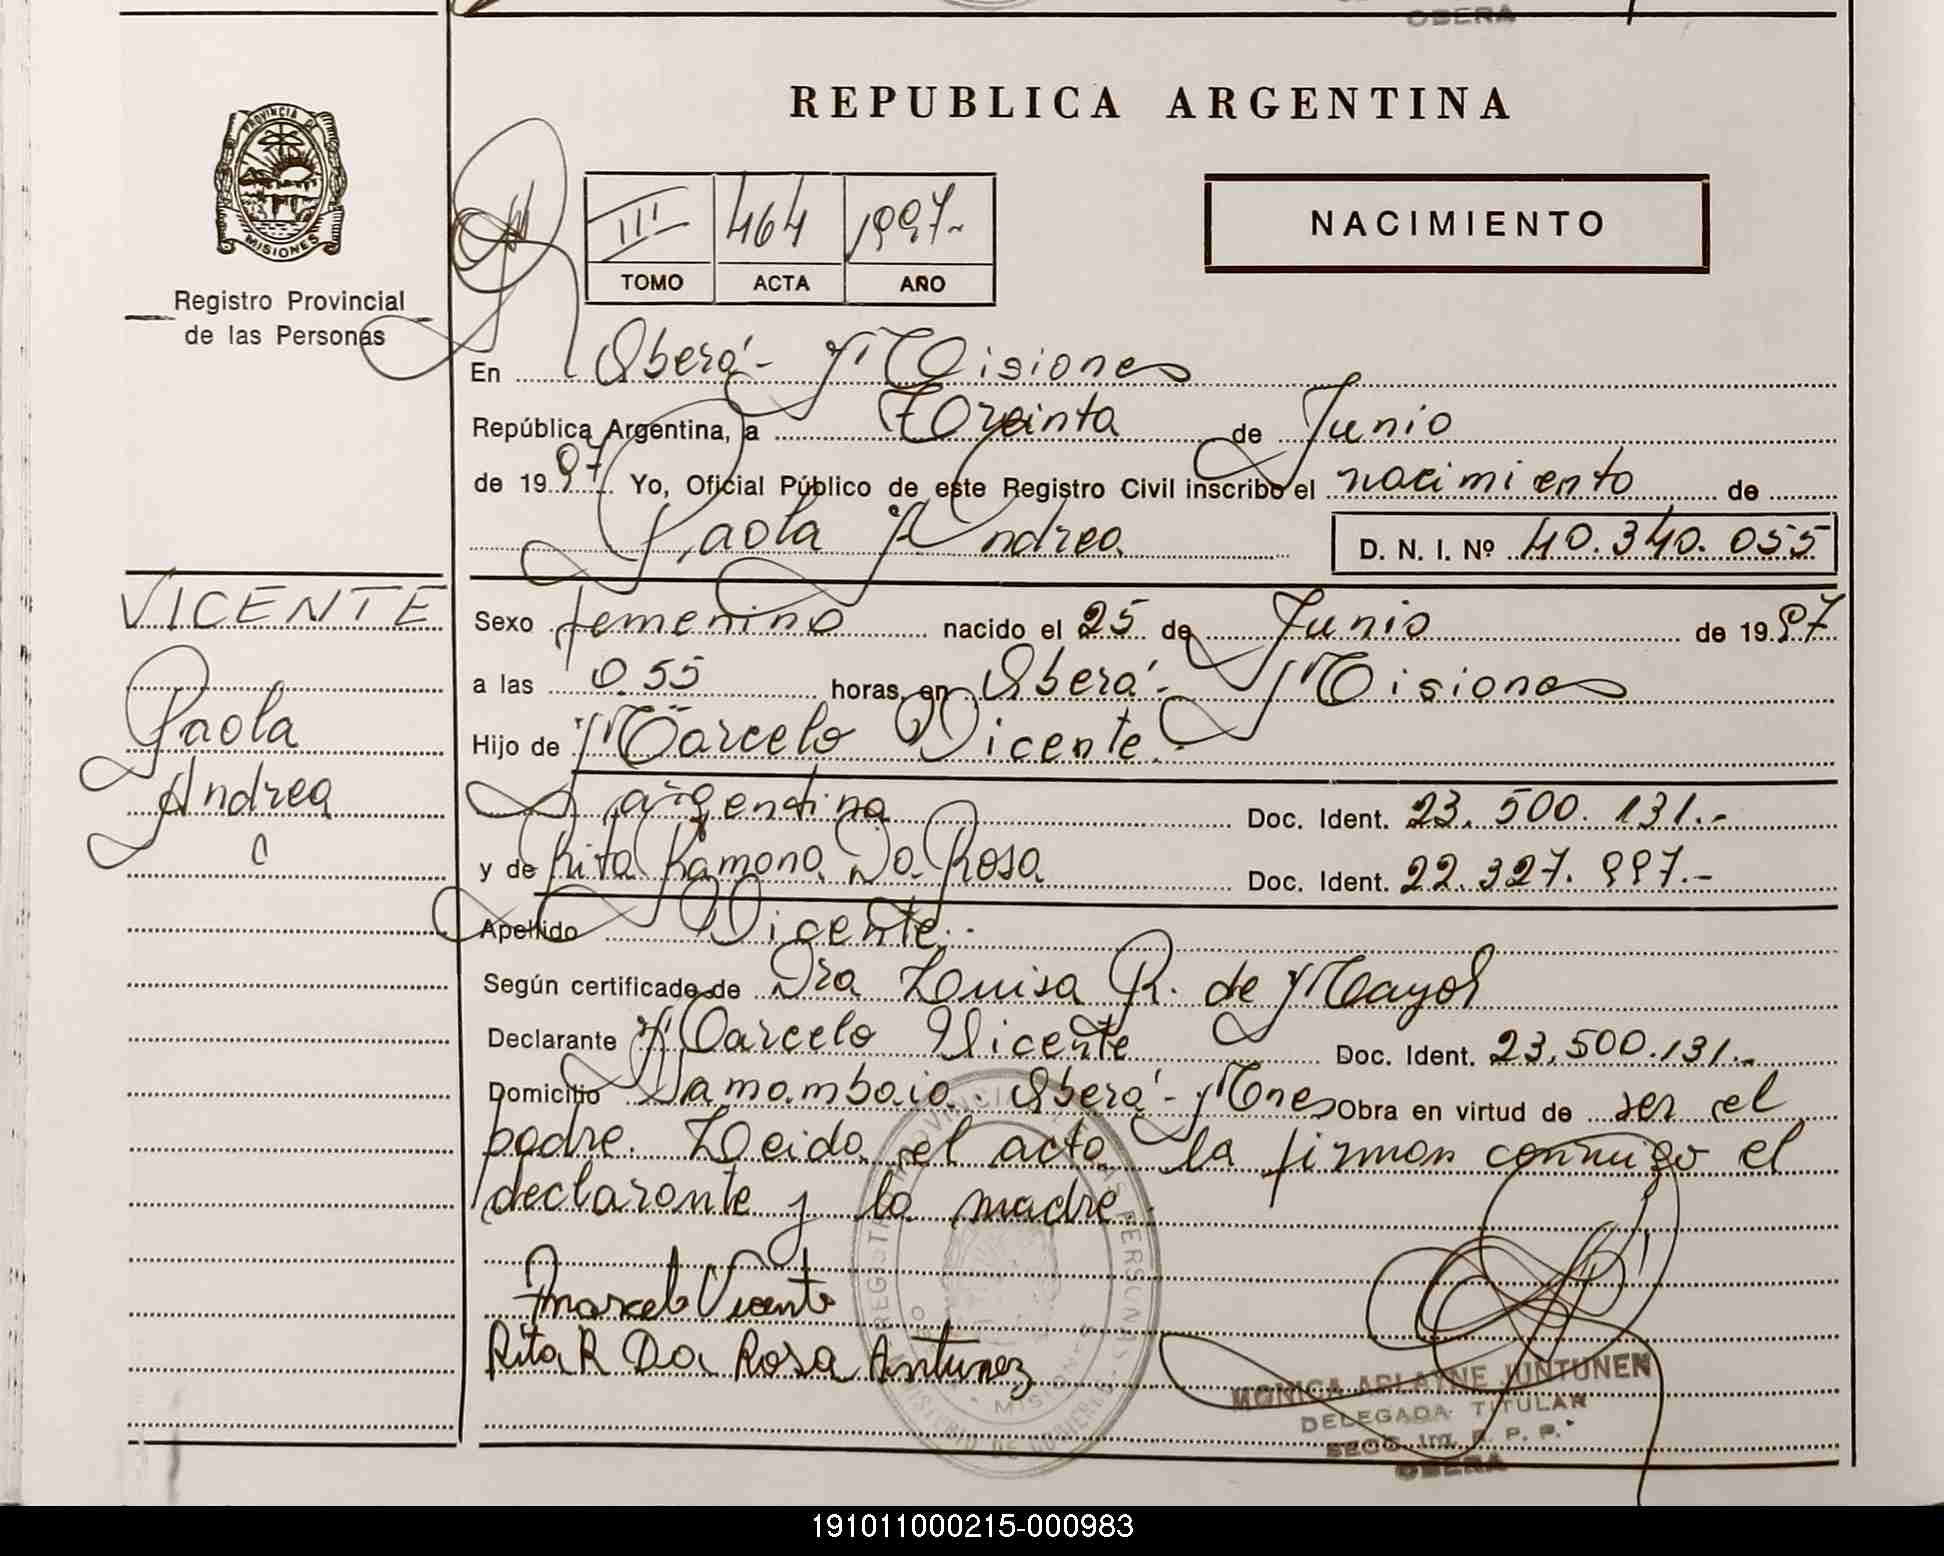 OBERA
PROVINCIA DE
MISIONES
Registro Provincial
de las Personas
REPUBLICA ARGENTINA
III 464 1997.-
TOMO ACTA AÑO
NACIMIENTO
En Oberá - Misiones
República Argentina, a Treinta de Junio
de 1997 Yo, Oficial Público de este Registro Civil inscribo el nacimiento de
Paola Andrea D. N. I. Nº 40.340.055
VICENTE
Paola
Andrea
Sexo femenino nacido el 25 de Junio de 1997
a las 0.55 horas, en Oberá - Misiones
Hijo de Marcelo Vicente.
argentina Doc. Ident. 23.500.131.-
y de Rita Ramona Da Rosa Doc. Ident. 22.327.997.-
Apellido Vicente.-
Según certificado de Dra Luisa R. de Mayol
Declarante Marcelo Vicente Doc. Ident. 23.500.131.-
Domicilio Samambaia. Oberá - Mnes Obra en virtud de ser el
padre. Leida el acta la firman conmigo el
declarante y la madre.
Marcelo Vicente
Rita R Da Rosa Antunez
MONICA ARLAYNE JUNTUNEN
DELEGADA TITULAR
SECC. 1ra. R. P. P.
OBERA
191011000215-000983